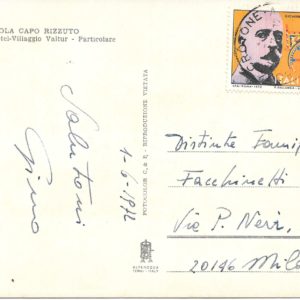 OLA CAPO RIZZUTO
tel-Villaggio Valtur - Particolare
Salutoni
Gino
1-6-1972
FOTOCOLOR C. & P. - RIPRODUZIONE VIETATA
ALTEROCCA
TERNI - ITALY
CROTONE
Distinta Famig
Facchinetti
Via P. Neri,
20146 Mila